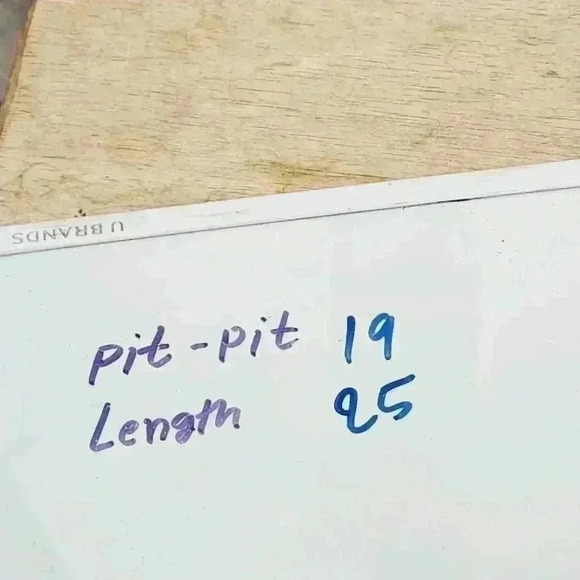 U BRANDS
pit-pit 19
Length 25